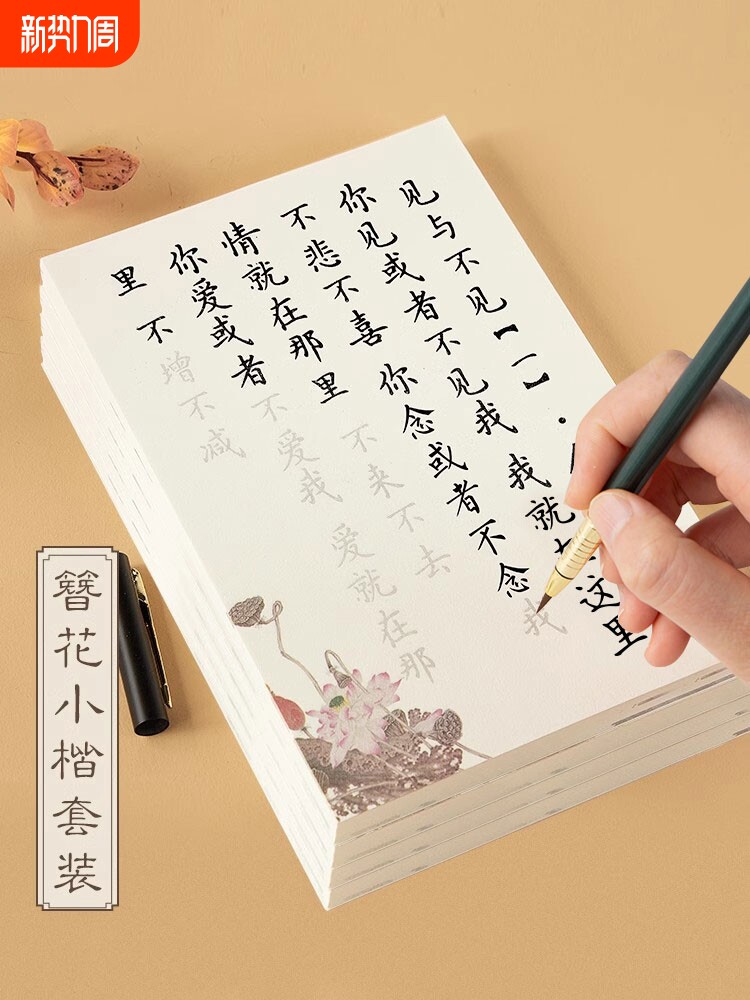 新势力周
见与不见【一】·
你见或者不见我 我就在这里
不悲不喜 你念或者不念我
情就在那里 不来不去
你爱或者不爱我 爱就在那
里 不增不减
簪花小楷套装